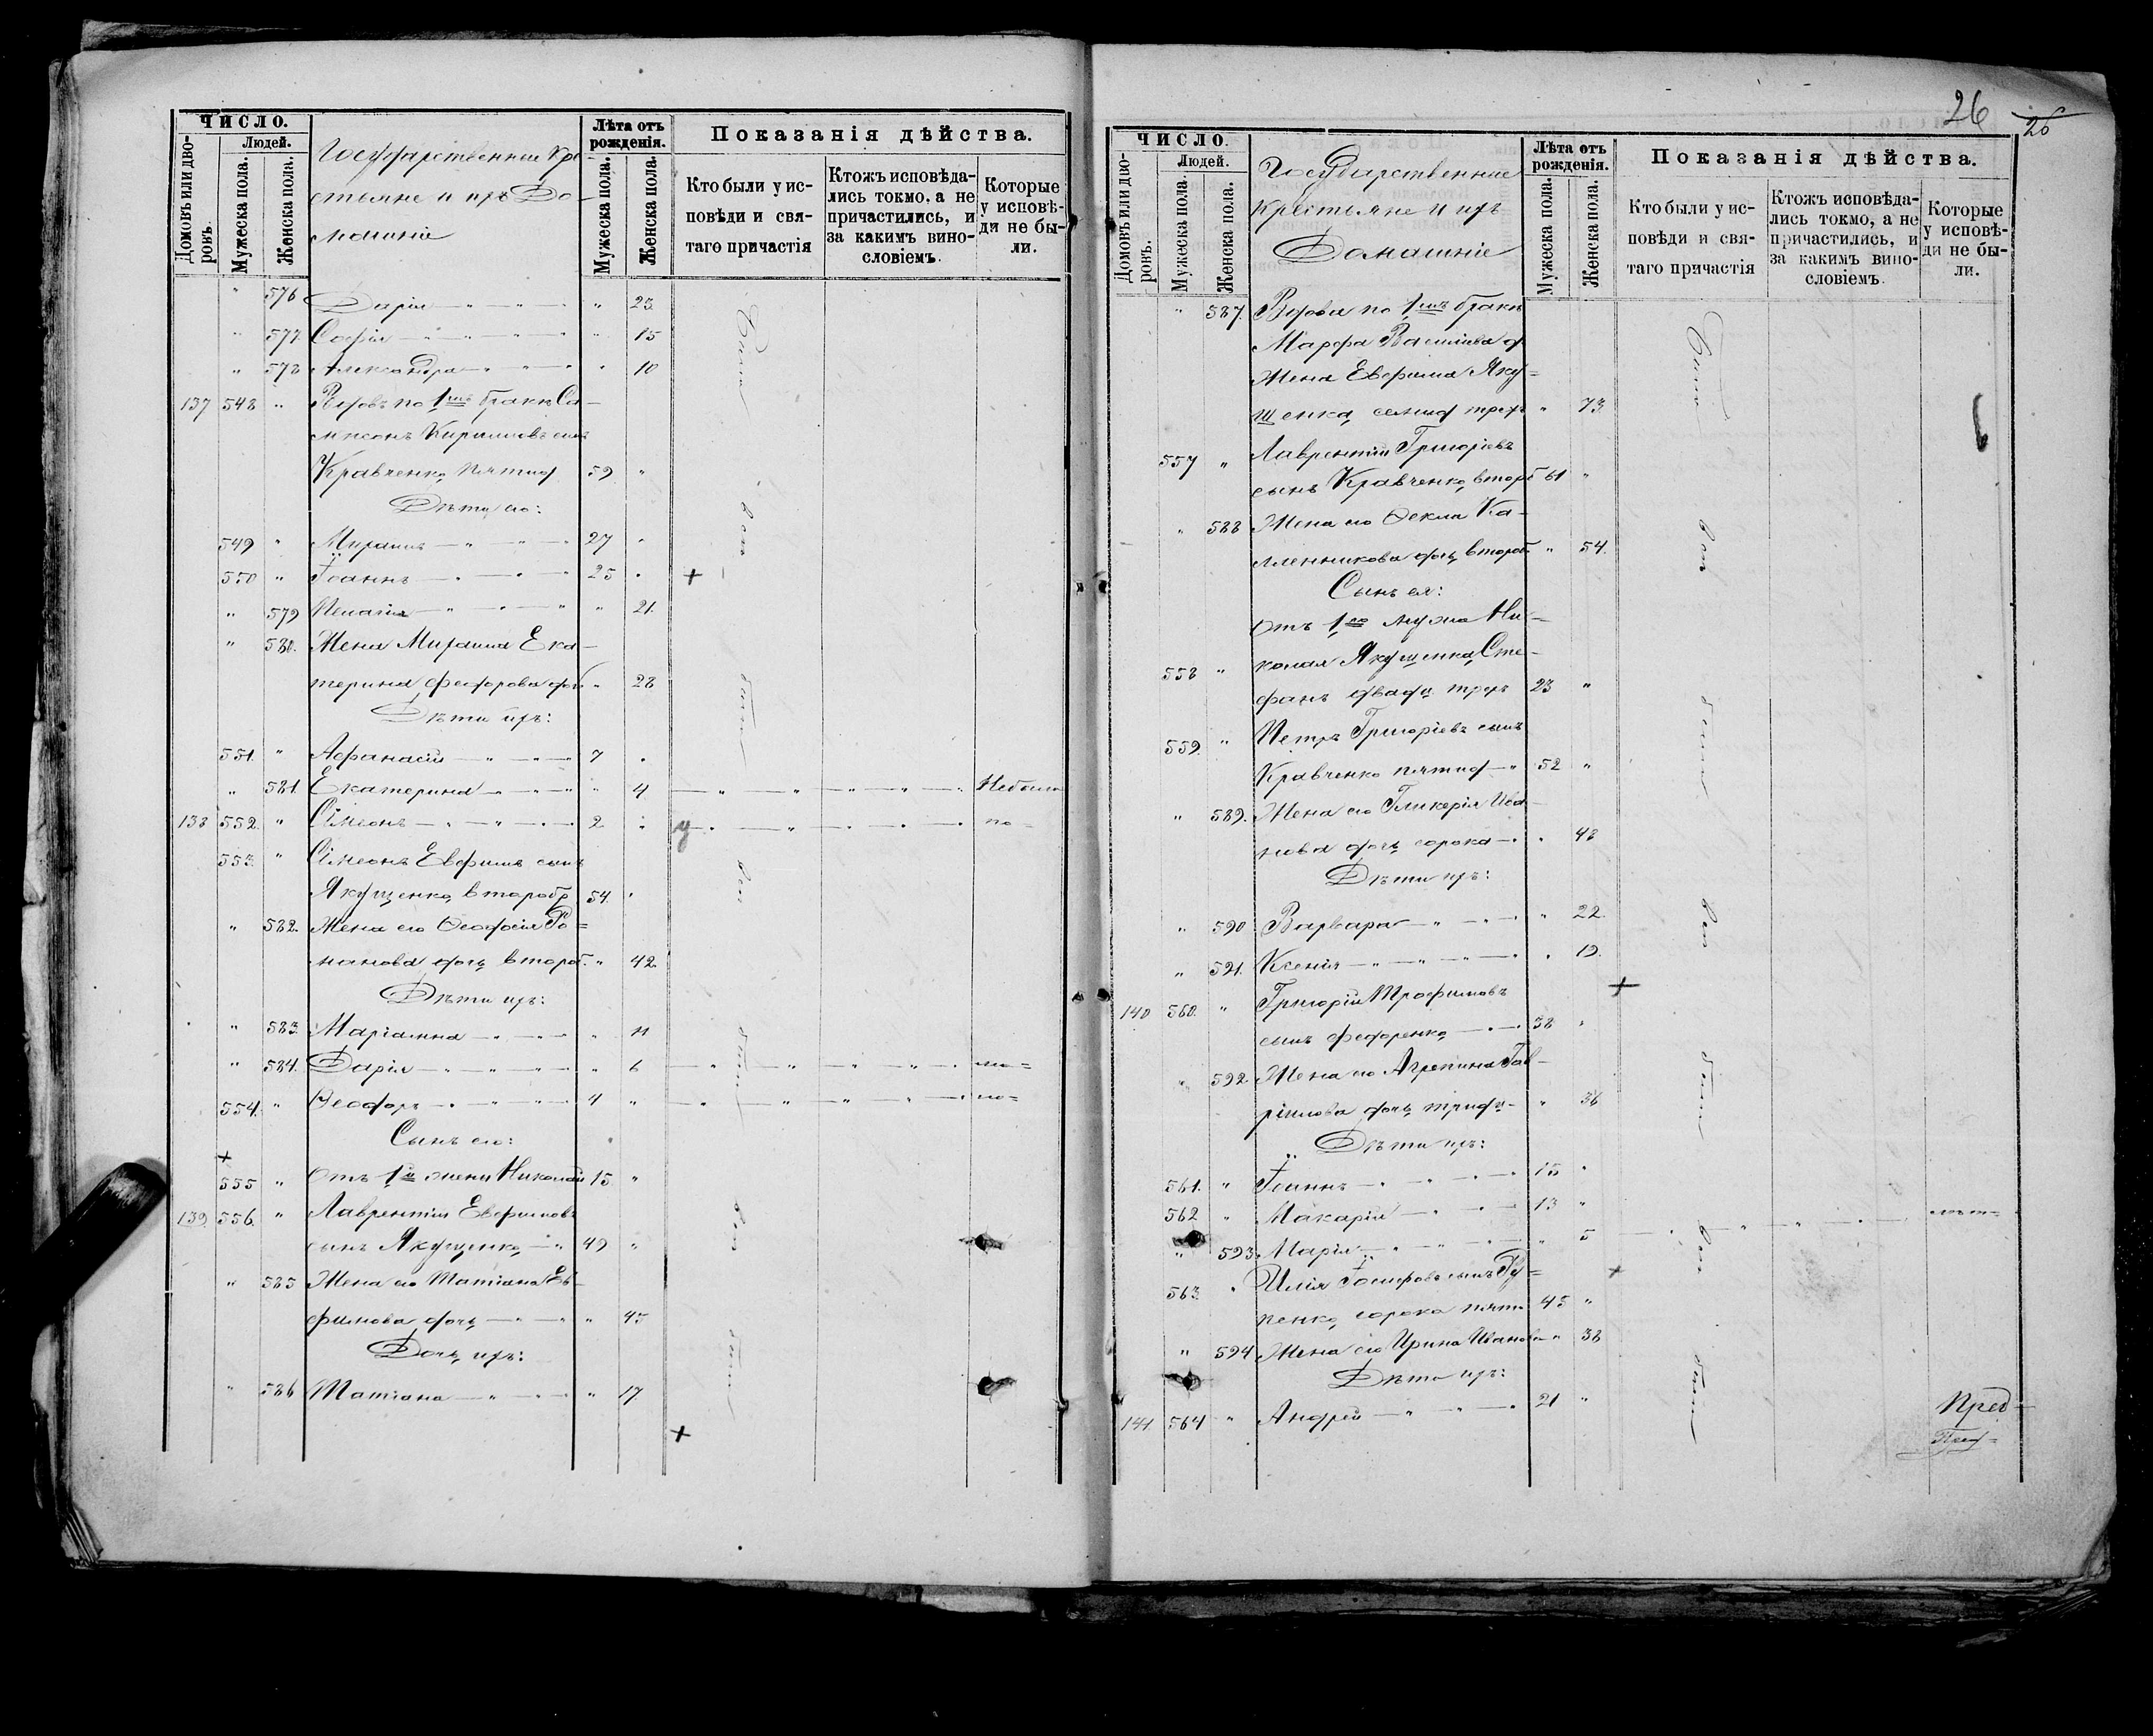 ЧИСЛО.
Домовъ или дворовъ.
Людей.
Мужеска пола.
Женска пола.
Государственные Кре-
стьяне и ихъ До-
машніе
Лѣта отъ рожденія.
Мужеска пола.
Женска пола.
Показанія дѣйства.
Кто были у ис-
повѣди и свя-
таго причастія
Ктожъ исповѣда-
лись токмо, а не
причастились, и
за какимъ вино-
словіемъ.
Которые
у исповѣ-
ди не бы-
ли.
" 576 Дарія " 23
" 577 Софія " 15
" 578 Александра " 10
137 548 " Вдовъ по 1мъ бракѣ Са-
мсонъ Кириловъ сынъ
Кравченко, пятид 59 "
Дѣти его:
549 " 27 "
550 " Іоаннъ 25 "
" 579 Пелагія " 21.
" 580. Жена Ека-
терина Федорова доч " 28
Дѣти ихъ:
551. " Афанасій 7 "
" 581. Екатерина " 4 Небыла
138 552. " Сімеонъ 2 " по-
553. " Сімеонъ Евфимъ сынъ
Якущенко, второбр 54. "
" 582. Жена его Феодосія Ро=
манова дочь второб. " 42.
Дѣти ихъ:
" 583. Маріамна " 11
" 584. Дарія " 6
554. " Феодоръ 4 "
Сынъ его:
555 " Отъ 1й жены Николай 15. "
139. 556. " Лаврентій Евфимовъ
сынъ Якущенко 49 "
" 585 Жена его Татіана Ев-
фимова дочь " 45
Дочь ихъ:
" 586 Татіана " 17
26
26
ЧИСЛО.
Домовъ или дворовъ.
Людей.
Мужеска пола.
Женска пола.
Государственные
Крестьяне и ихъ
Домашніе
Лѣта отъ рожденія.
Мужеска пола.
Женска пола.
Показанія дѣйства.
Кто были у ис-
повѣди и свя-
таго причастія
Ктожъ исповѣда-
лись токмо, а не
причастились, и
за какимъ вино-
словіемъ.
Которые
у исповѣ-
ди не бы-
ли.
" 587. Вдова по 1мъ бракѣ
Марфа Василіева д
Жена Евфима Яку=
щенка, семид трех " 73.
557 " Лаврентій Григоріевъ
сынъ Кравченко, второб 61 "
" 588 Жена его Фекла Ка-
лленникова дочь второб " 54.
Сынъ ея:
Отъ 1го мужа Ни-
558 " колая Якущенка, Сте-
фанъ двадц трехъ 23 "
559. " Петръ Григоріевъ сынъ
Кравченко пятид 52 "
" 589. Жена его Гликерія Ива-
нова дочь сорока " 48
Дѣти ихъ:
" 590 Варвара " 22.
" 591. Ксенія " 19.
140 560. " Григорій Трофимовъ
сынъ Федоренко, 38 "
" 592. Жена его Агрепина Гав-
ріилова дочь тридц " 36
Дѣти ихъ:
561. " Іоаннъ 15 "
562 " Макарій 13 "
" 593. Марія " 5
563. " Илія Іосифовъ сынъ Гу=
пенко, сорока пяти 45 "
" 594 Жена его Ирина Иванова " 38
Дѣти ихъ:
141. 564 " Андрей 21 "
Пред